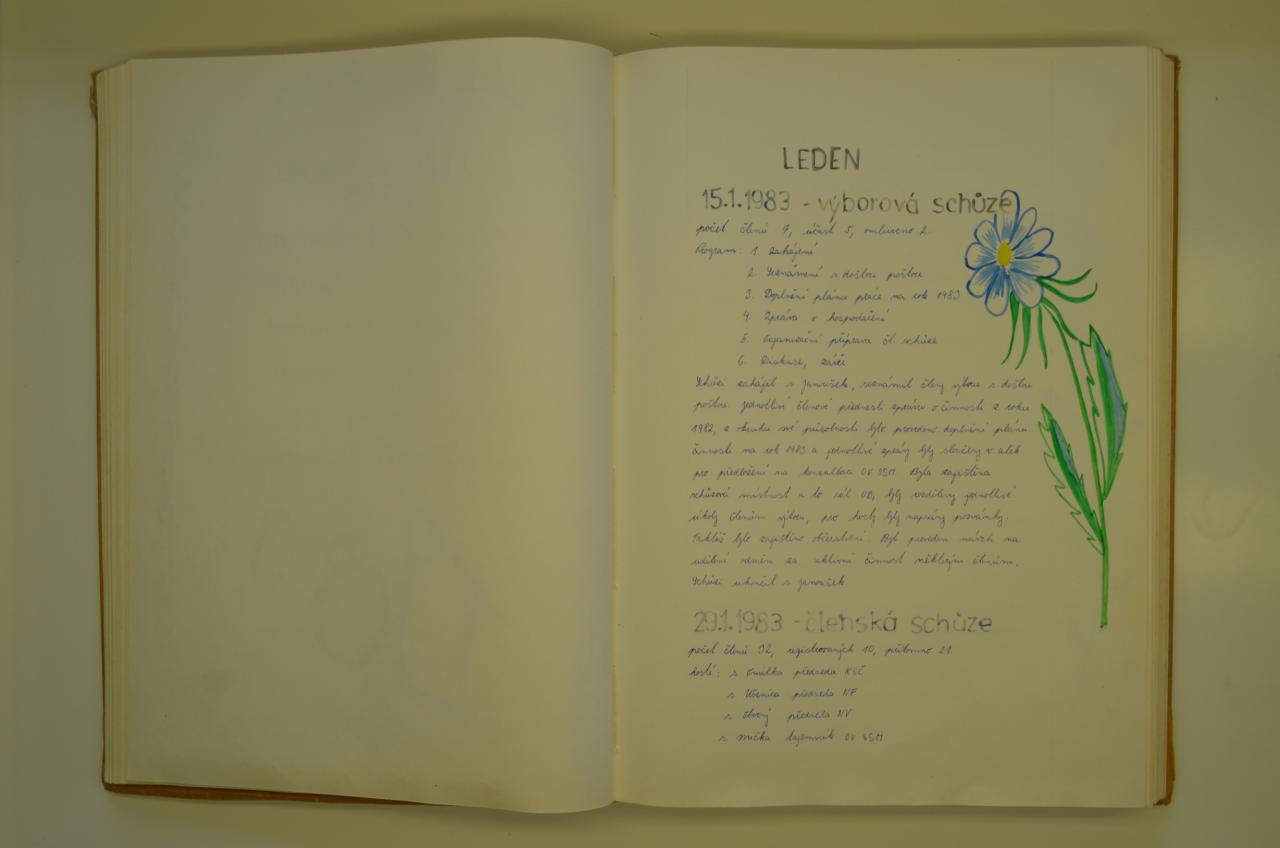 LEDEN
15.1.1983 - výborová schůze
počet členů 7, účast 5, omluveno 2.
Program: 1. Zahájení
2. Seznámení s došlou poštou
3. Doplnění plánu práce na rok 1983
4. Zpráva o hospodaření
5. Organizační příprava čl. schůze
6. Diskuse, závěr
Schůzi zahájil s. Janoušek, seznámil členy výboru s došlou
poštou. Jednotliví členové přednesli zprávu o činnosti z roku
1982, z okruhu své působnosti bylo provedeno doplnění plánu
činnosti na rok 1983 a jednotlivé zprávy byly sloučeny v celek
pro předložení na konzultaci OV SSM. Byla zajištěna
schůzová místnost a to sál OB, byly rozděleny jednotlivé
úkoly členům výboru, pro hosty byly napsány pozvánky.
Taktéž bylo zajištěno občerstvení. Byl proveden návrh na
udělení odměn za aktivní činnost některým členům.
Schůzi ukončil s. Janoušek
29.1.1983 - členská schůze
počet členů 32, registrovaných 10, přítomno 21
hosté: s. Omělka předseda KSČ
s. předseda NF
s. předseda NV
s. Mička tajemník OV SSM